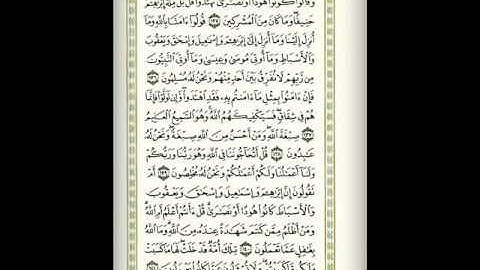 وَقَالُوا۟ كُونُوا۟ هُودًا أَوْ نَصَـٰرَىٰ تَهْتَدُوا۟ قُلْ بَلْ مِلَّةَ إِبْرَٰهِـۧمَ
حَنِيفًا وَمَا كَانَ مِنَ ٱلْمُشْرِكِينَ ١٣٥ قُولُوٓا۟ ءَامَنَّا بِٱللَّهِ وَمَآ
أُنزِلَ إِلَيْنَا وَمَآ أُنزِلَ إِلَىٰٓ إِبْرَٰهِـۧمَ وَإِسْمَـٰعِيلَ وَإِسْحَـٰقَ وَيَعْقُوبَ
وَٱلْأَسْبَاطِ وَمَآ أُوتِىَ مُوسَىٰ وَعِيسَىٰ وَمَآ أُوتِىَ ٱلنَّبِيُّونَ
مِن رَّبِّهِمْ لَا نُفَرِّقُ بَيْنَ أَحَدٍ مِّنْهُمْ وَنَحْنُ لَهُۥ مُسْلِمُونَ ١٣٦
فَإِنْ ءَامَنُوا۟ بِمِثْلِ مَآ ءَامَنتُم بِهِۦ فَقَدِ ٱهْتَدَوا۟ وَّإِن تَوَلَّوْا۟ فَإِنَّمَا
هُمْ فِى شِقَاقٍ فَسَيَكْفِيكَهُمُ ٱللَّهُ وَهُوَ ٱلسَّمِيعُ ٱلْعَلِيمُ
١٣٧ صِبْغَةَ ٱللَّهِ وَمَنْ أَحْسَنُ مِنَ ٱللَّهِ صِبْغَةً وَنَحْنُ لَهُۥ
عَـٰبِدُونَ ١٣٨ قُلْ أَتُحَآجُّونَنَا فِى ٱللَّهِ وَهُوَ رَبُّنَا وَرَبُّكُمْ
وَلَنَآ أَعْمَـٰلُنَا وَلَكُمْ أَعْمَـٰلُكُمْ وَنَحْنُ لَهُۥ مُخْلِصُونَ ١٣٩ أَمْ
تَقُولُونَ إِنَّ إِبْرَٰهِـۧمَ وَإِسْمَـٰعِيلَ وَإِسْحَـٰقَ وَيَعْقُوبَ
وَٱلْأَسْبَاطَ كَانُوا۟ هُودًا أَوْ نَصَـٰرَىٰ قُلْ ءَأَنتُمْ أَعْلَمُ أَمِ ٱللَّهُ
وَمَنْ أَظْلَمُ مِمَّن كَتَمَ شَهَـٰدَةً عِندَهُۥ مِنَ ٱللَّهِ وَمَا ٱللَّهُ
بِغَـٰفِلٍ عَمَّا تَعْمَلُونَ ١٤٠ تِلْكَ أُمَّةٌ قَدْ خَلَتْ لَهَا مَا كَسَبَتْ
وَلَكُم مَّا كَسَبْتُمْ وَلَا تُسْـَٔلُونَ عَمَّا كَانُوا۟ يَعْمَلُونَ ١٤١